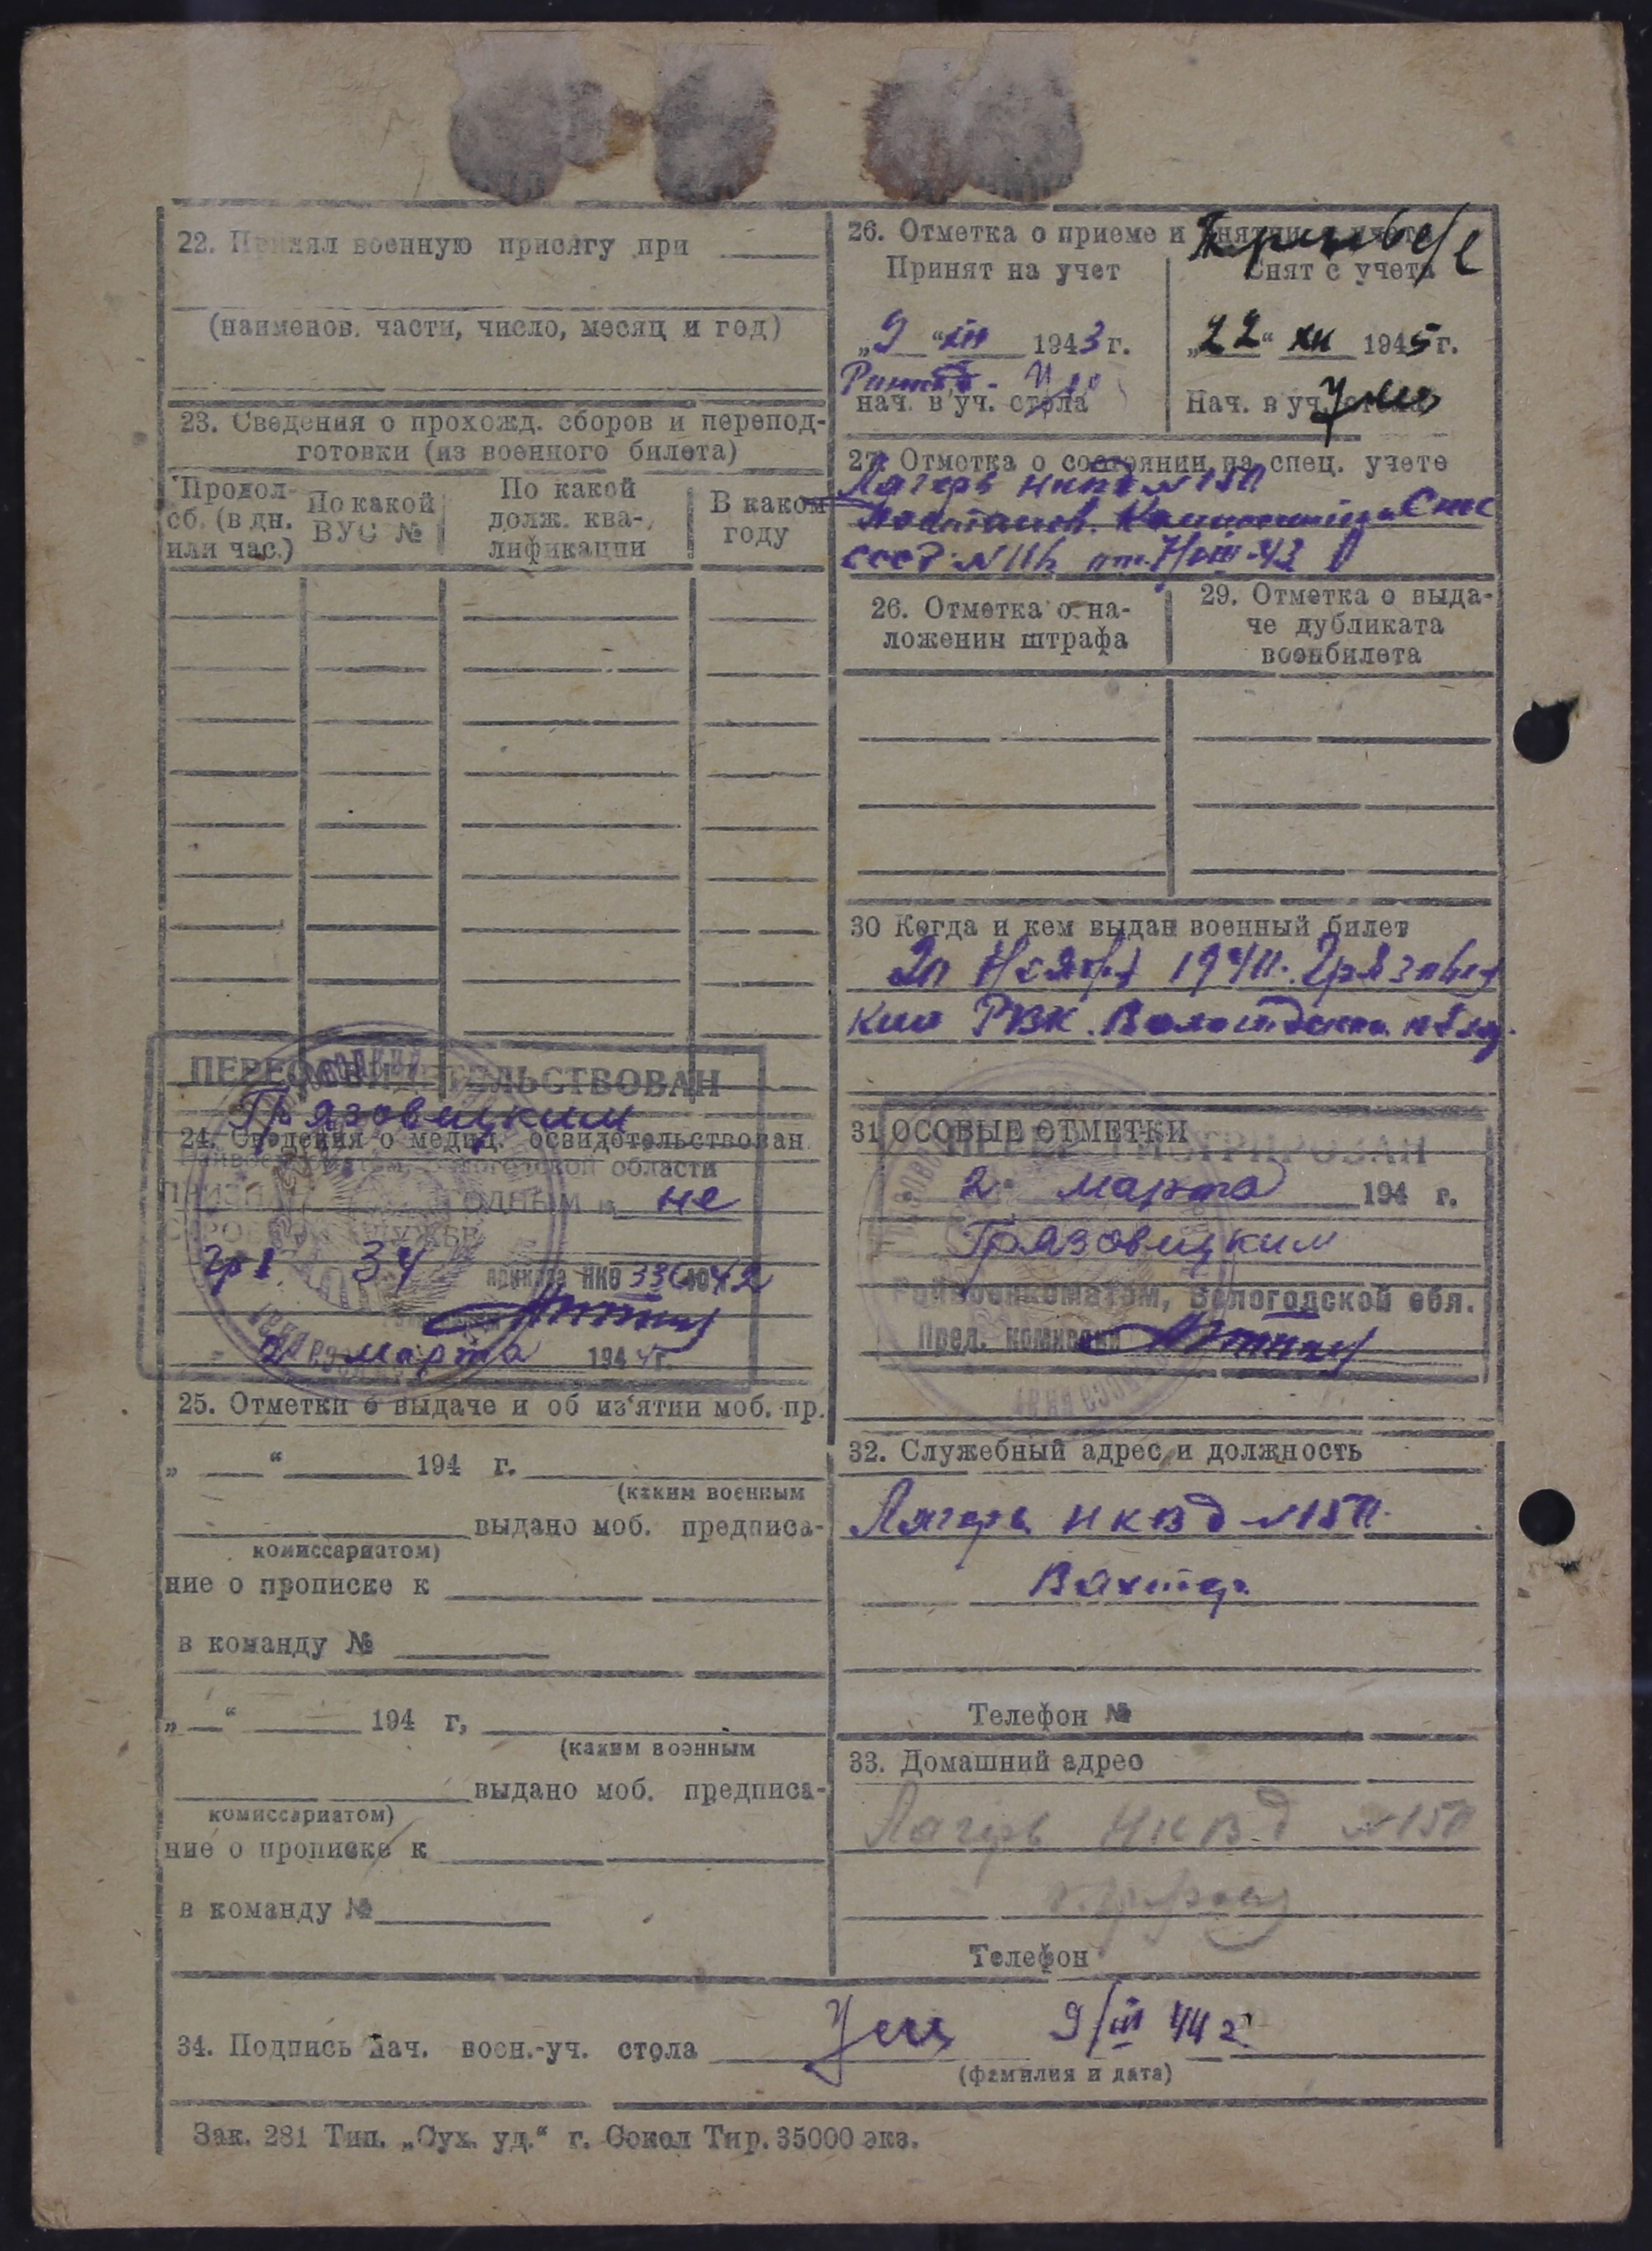 22. Принял военную присягу при
(наименов. части, число, месяц и год)
23. Сведения о прохожд. сборов и перепод-
готовки (из военного билета)
Продол-
сб. (в дн.
или час.)
По какой
ВУС №
По какой
долж. ква-
лификации
В каком
году
ПЕРЕОСВИДЕТЕЛЬСТВОВАН
Грязовецким
24. Сведения о медиц. освидетельствован.
Райвоенкоматом, Вологодской области
ПРИЗНАН ГОДНЫМ к не
СТРОЕВОЙ СЛУЖБЕ
гр I 34 приказа НКО 336 1942
2 марта 1944 г.
25. Отметки о выдаче и об из'ятии моб. пр.
„ “ 194 г.
(каким военным
выдано моб. предписа-
комиссариатом)
ние о прописке к
в команду №
„ “ 194 г,
(каким военным
выдано моб. предписа-
комиссариатом)
ние о прописке к
в команду №
26. Отметка о приеме и снятии с учета
Принят на учет
„9“ XII 1943 г.
нач. в уч. стола
Снят с учета
„22“ XII 1945 г.
Нач. в уч. стола
27. Отметка о состоянии на спец. учете
Лагерь НКВД №150
Постанов. Комиссии при СНК
СССР №116 от 7/VIII-43
26. Отметка о на-
ложении штрафа
29. Отметка о выда-
че дубликата
воэнбилета
30 Когда и кем выдан военный билет
20 Ноября 1941г. Грязовец
ким РВК Вологодской обл.
31 ОСОБЫЕ ОТМЕТКИ
ПЕРЕРЕГИСТРИРОВАН
2 марта 194 г.
Грязовецким
Райвоенкоматом, Вологодской обл.
Пред. комиссии
32. Служебный адрес и должность
Лагерь НКВД №150
Вахтер
Телефон №
33. Домашний адрес
Лагерь НКВД №150
Телефон
34. Подпись нач. воен.-уч. стола 9/III 44 г
(фамилия и дата)
Зак. 281 Тип. „Сух. уд.“ г. Сокол Тир. 35000 экз.